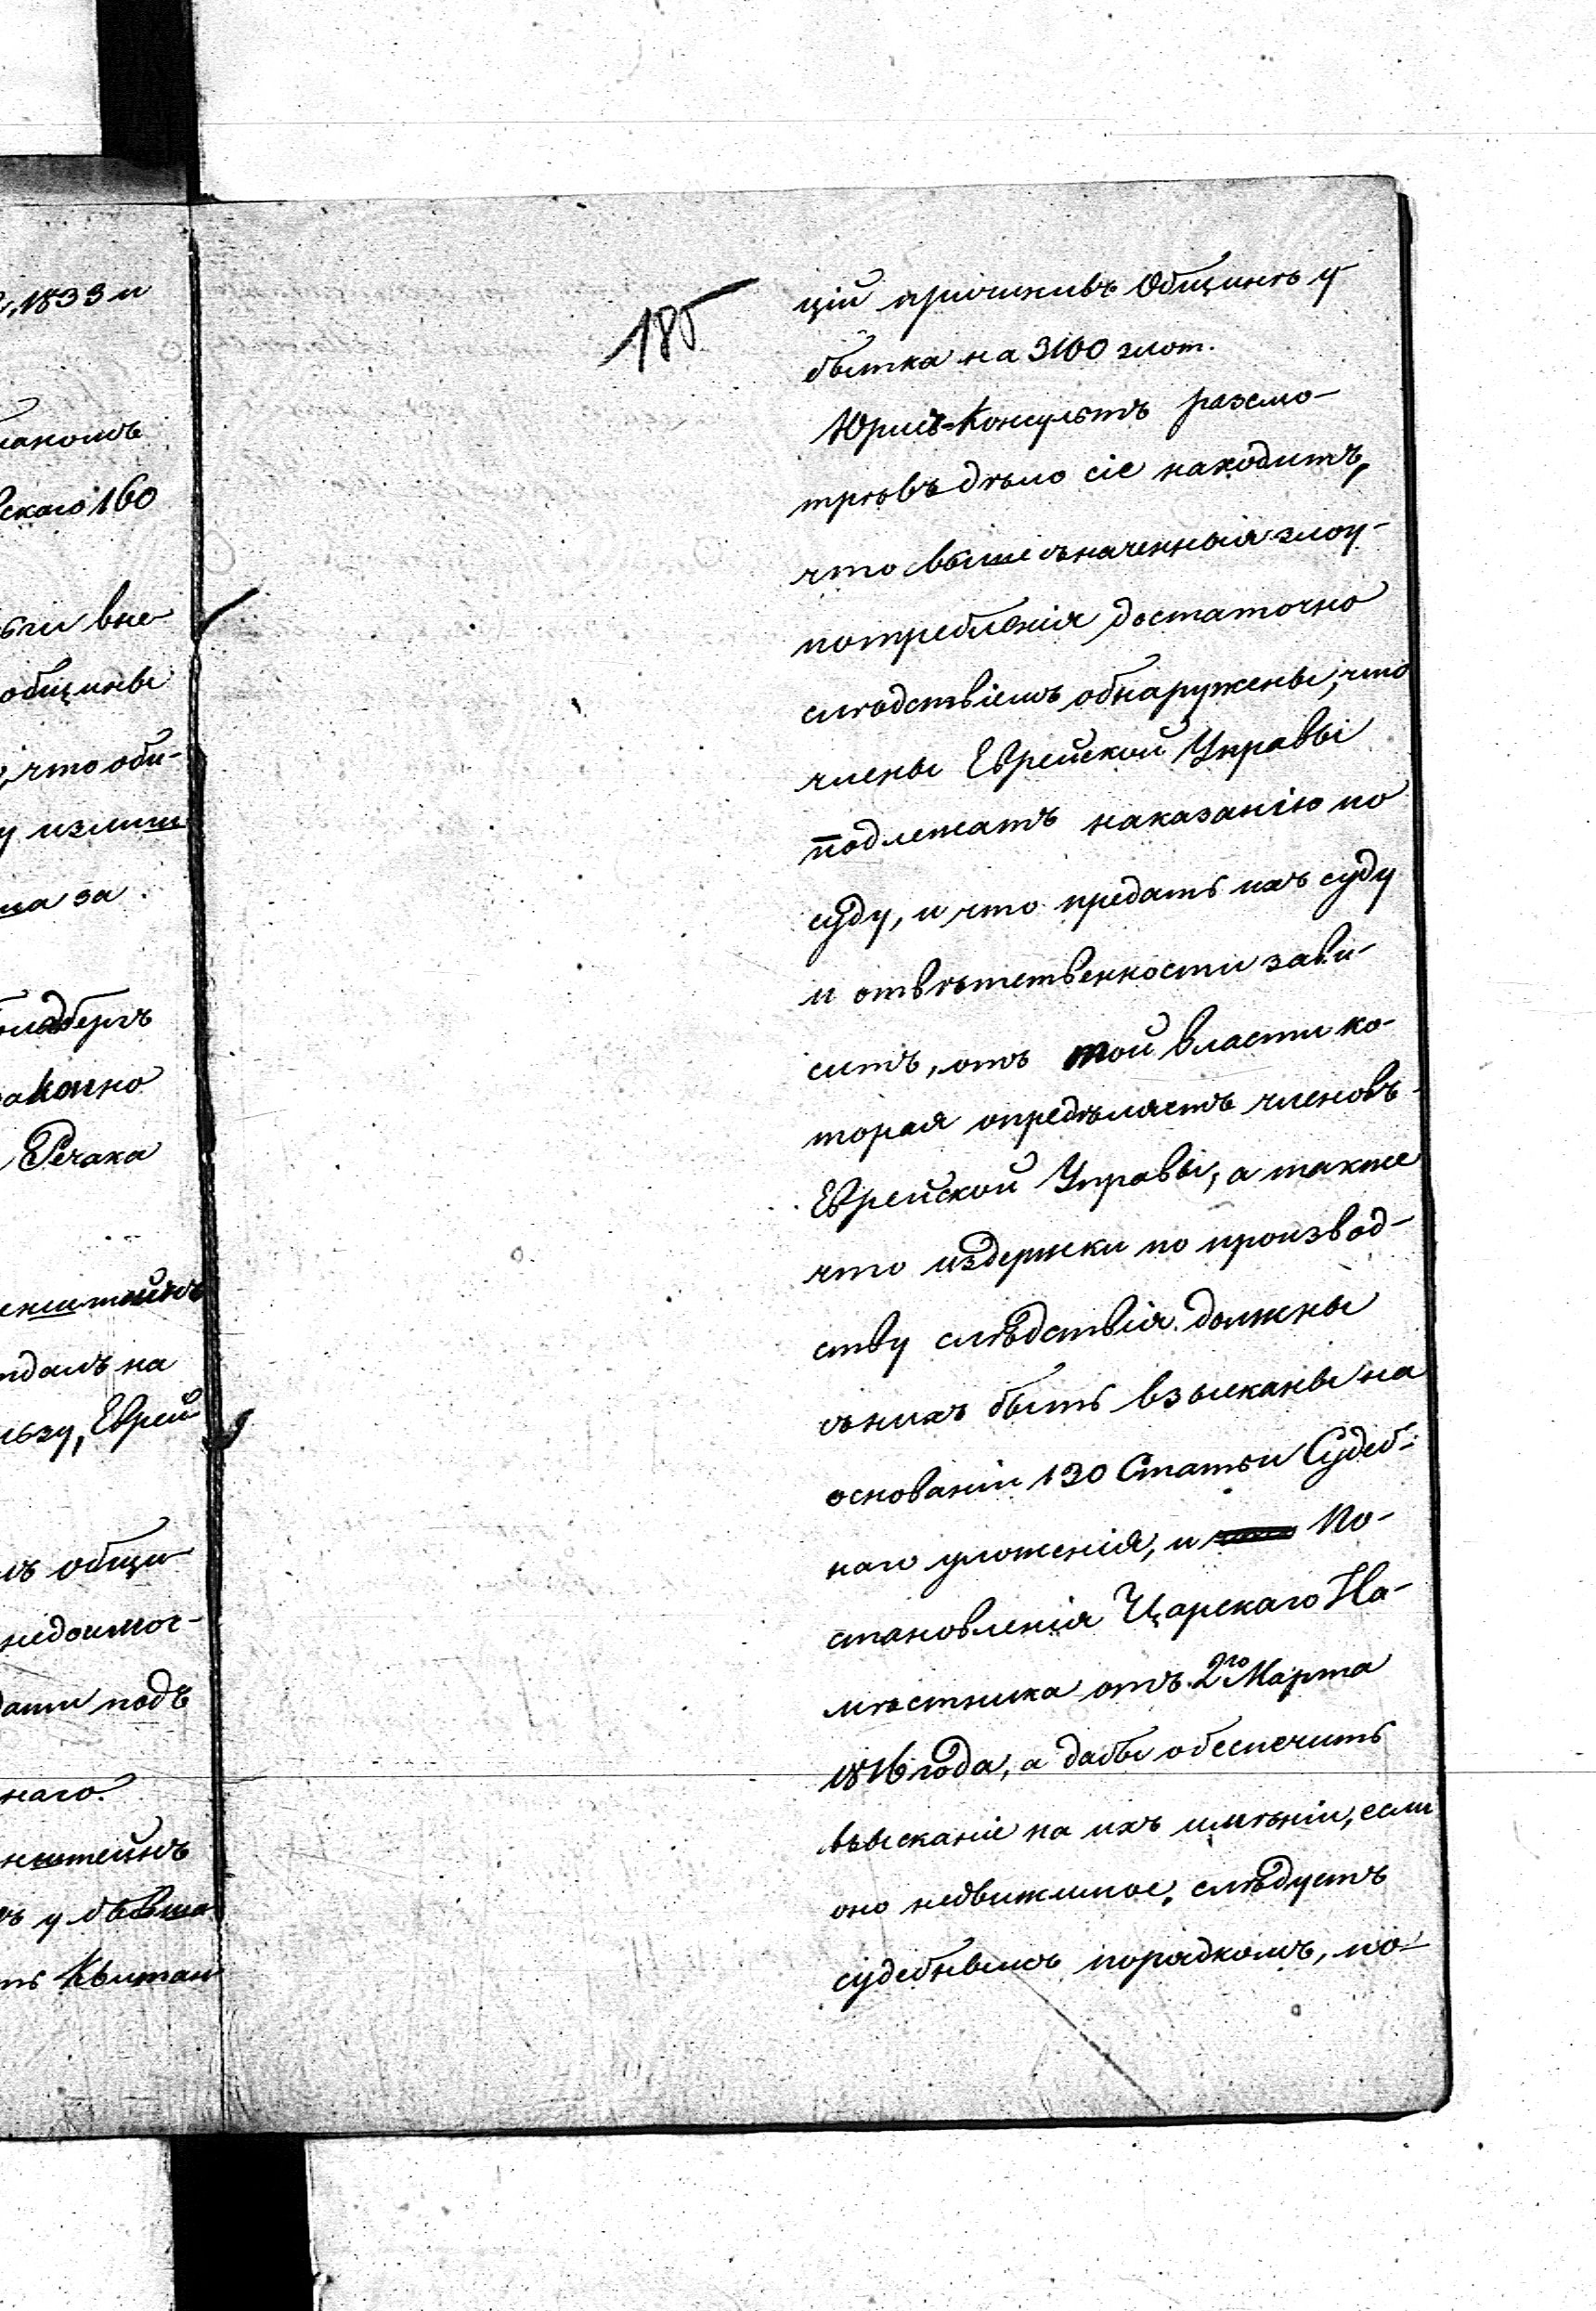 185
1833 и
160
вне
общины
что оби-
излиш
за
Речака
на
Еврей
общи
недоимос-
подъ
наго.
у
Квитан
цій причинивъ Общинѣ у
бытка на 3100 злот.
Юрисъ=Консультъ разсмо-
трѣвъ дѣло сіе находитъ,
что вышеозначенныя злоу-
потребленія достаточно
слѣдствіемъ обнаружены, что
члены Еврейской Управы
подлежатъ наказанію по
суду, и что предать ихъ суду
и отвѣтственности зави-
ситъ, отъ той власти ко-
торая опредѣляетъ членовъ
Еврейской Управы, а также
что издержки по производ-
ству слѣдствія должны
съ нихъ быть взысканы на
основаніи 130 Статьи Судеб-
наго уложенія, и По-
становленія Царскаго На-
мѣстника отъ 2го Марта
1816 года, а дабы обеспечить
взысканіе на ихъ имѣніи, если
оно недвижимое, слѣдуетъ
судебнымъ порядкомъ, по-